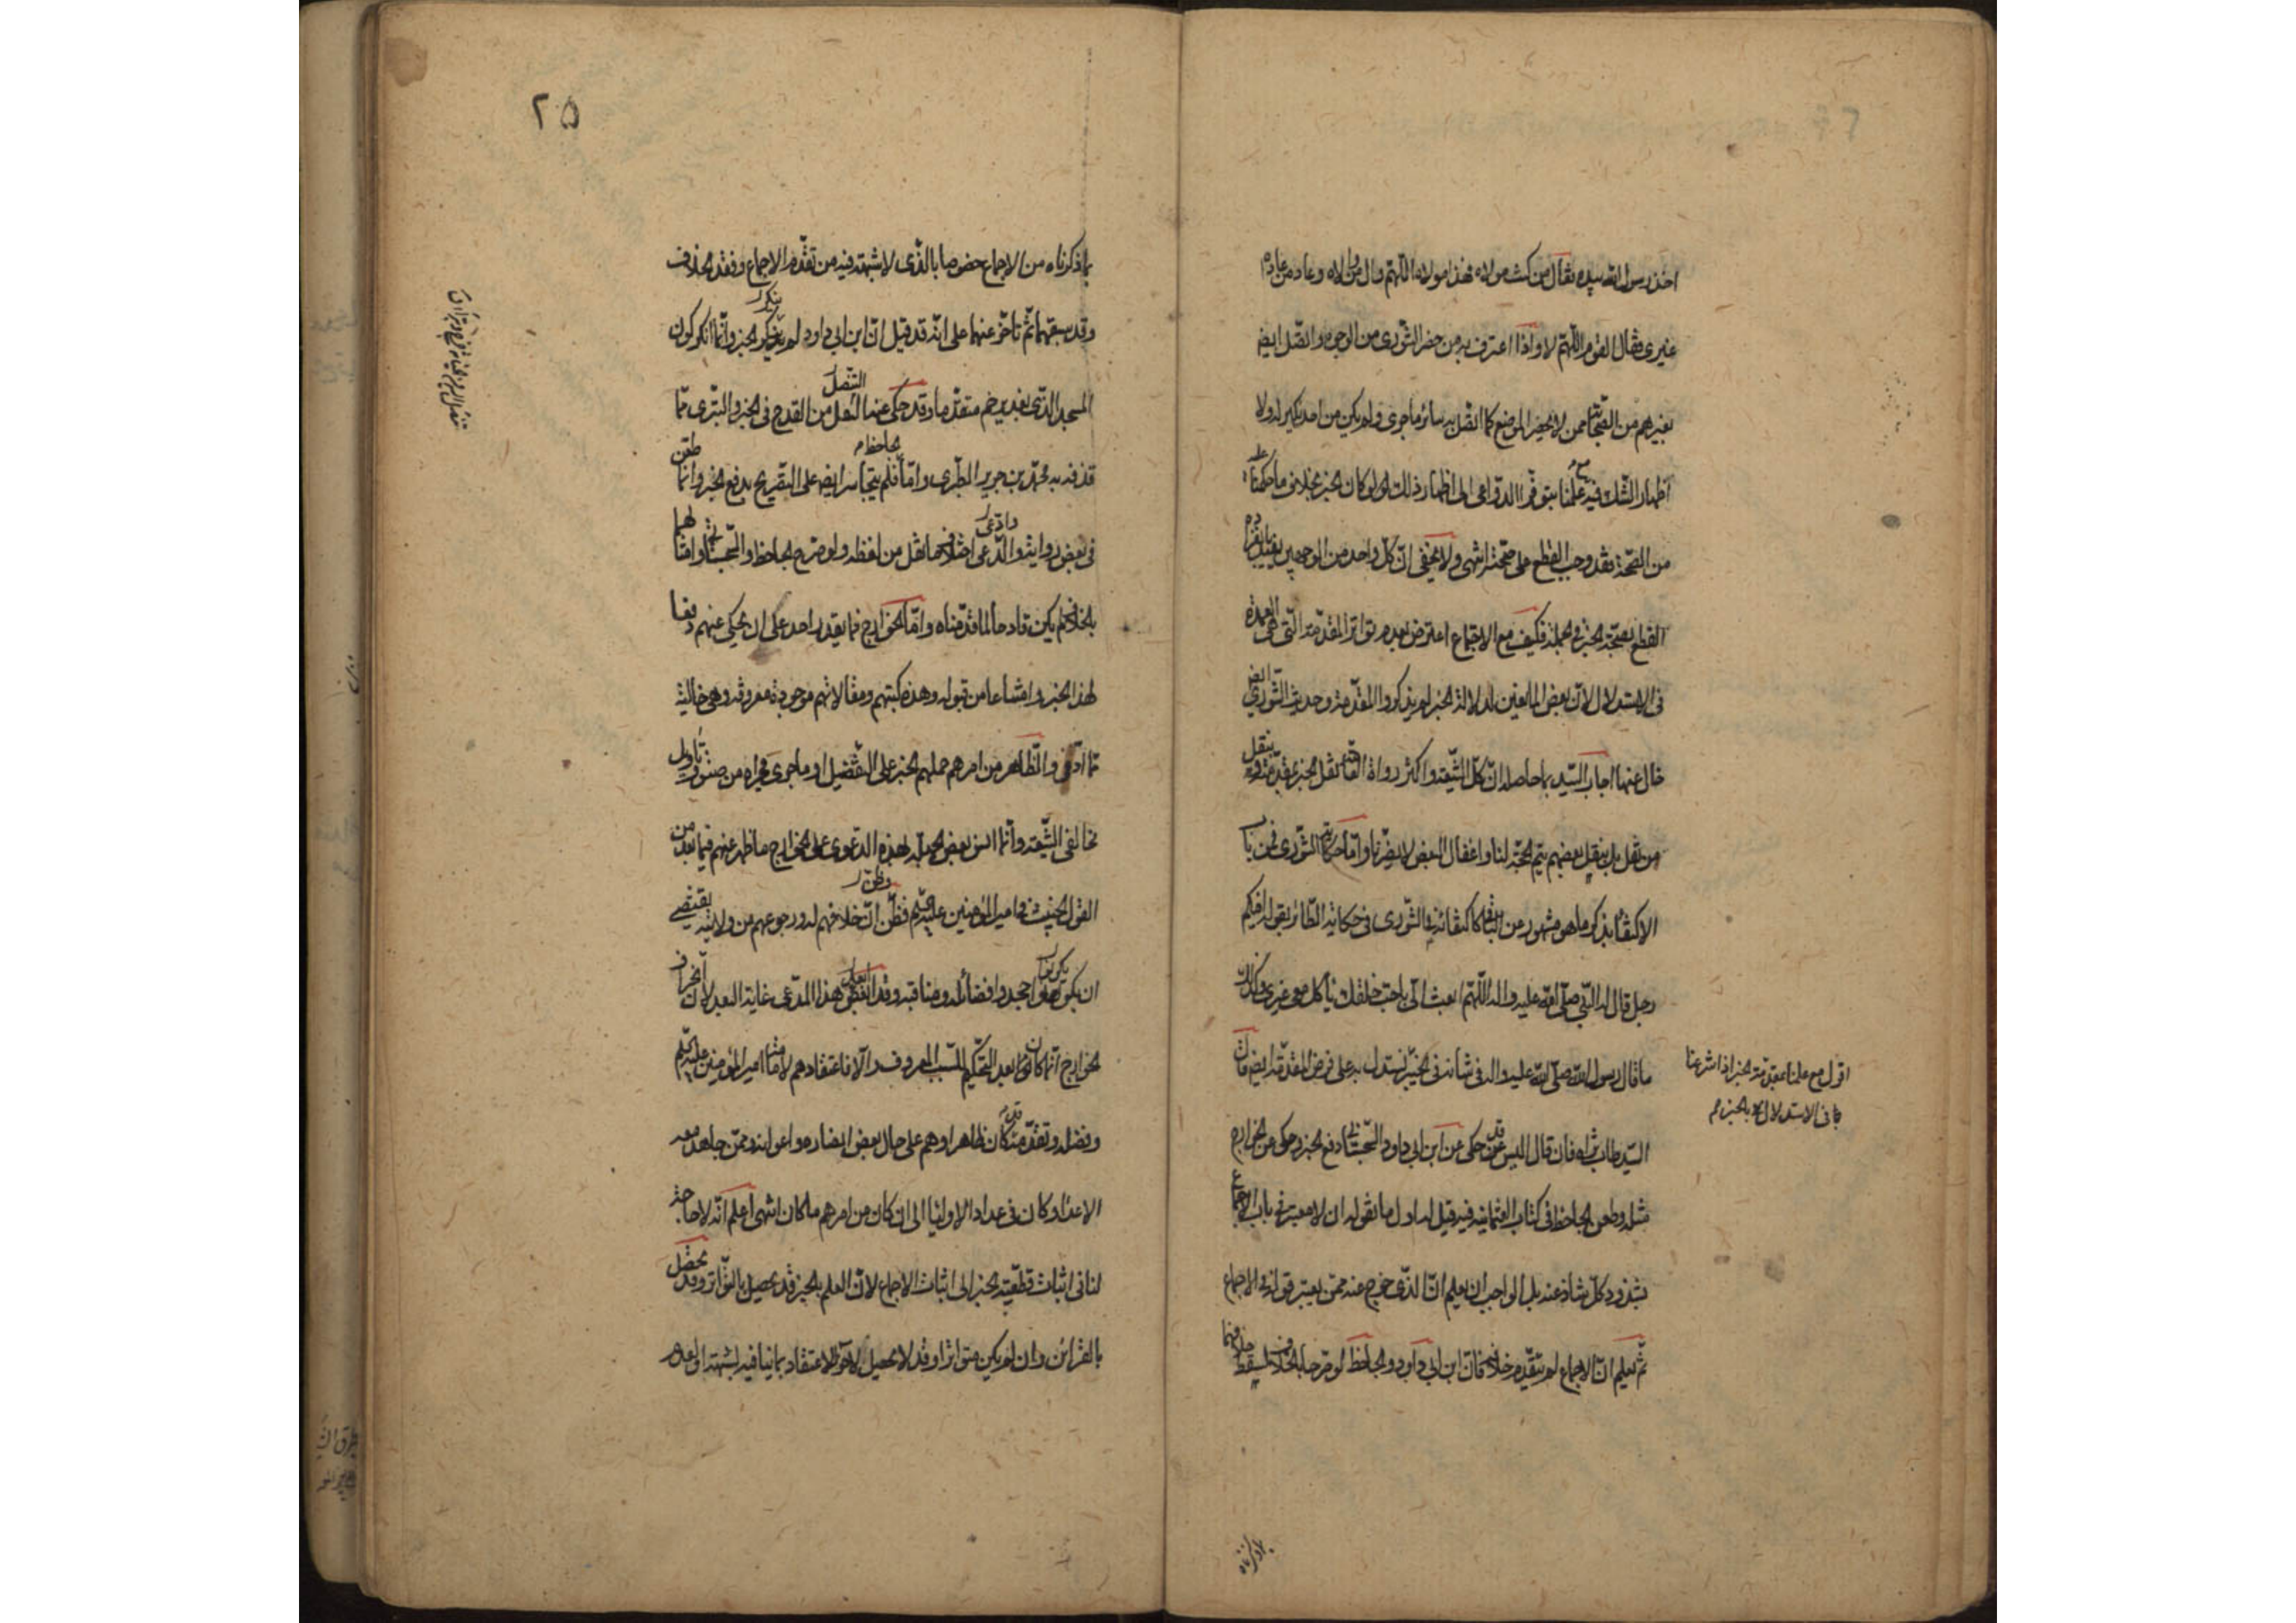 اخذ رسول الله بيده فقال من كنت مولاه فهذا مولاه اللّهم وال من والاه وعاد من عاداه
غيرى فقال القوم اللّهم لا واذا اعترف به من حضر الشّورى من الوجوه واتّصل ايضا
بغيرهم من الصّحابة ممن لم يحضر الموضع كما اتّصل به سائر ما جرى ولم يكن من احد نكير له ولا
اظهار الشّك فيه مع علمنا بتوفّر الدّواعى الى اظهار ذلك لو كان الخبر بخلاف ما حكمنا عليه
من الصّحة فقد وجب القطع على صحّته انتهى ولا يخفى انّ كلّ واحد من الوجهين يفيد بانفراده
القطع بصحّة الخبر فى الجملة فكيف مع الاجتماع اعترض بعدم تواتر المقدّمة الّتى هى العمدة
فى الاستدلال لانّ بعض المانعين لدلالة الخبر لم يذكروا المقدّمة وحديث الشّورى ايضا
خال عنها اجاب السّيد بما حاصله انّ كلّ الشّيعة واكثر رواة العامّة نقل الخبر بمقدّمته ينقل
من نقل بل بنقل بعضهم يتم الحجّة لنا واغفال البعض لا يضرّنا وامّا حكاية الشّورى فمن باب
الاكتفاء بذكر ما هو مشهور من الباقى كاكتفائه فى الشّورى فى حكاية الطّائر بقوله افيكم
رجل قال له النّبى صلّى الله عليه واله اللّهم ابعث الىّ باحبّ خلقك يأكل معى غيرى وكذلك
ما قال رسول الله صلّى الله عليه واله فى شانه فى خيبر نستدل به على فرض المقدّمة ايضا قال
السّيد طاب ثراه فان قال اليس قد حكى عن ابن ابى داود السّجستانى دفع الخبر وحكى عن الخوارج
مثله وطعن الجاحظ فى كتاب العثمانية فيه قيل له اول ما نقوله ان لا معتبر فى باب الاجماع
بشذوذ كلّ شاذّ عنه بل الواجب ان يعلم انّ الّذى خرج عنه ممّن يعتبر قوله فى الاجماع
ثمّ يعلم انّ الاجماع لم يتقدّم خلافه فانّ ابن ابى داود والجاحظ لو صرّحا بالخلاف لسقط خلافهما
اقول مع علمنا بمقدمة الخبر اذا شرعنا
فى الاستدلال بالخبر
٢٥
بما ذكرناه من الاجماع خصوصا بالّذى لا شبهة فيه من تقدّم الاجماع وفقد الخلاف
وقد سبقهما ثمّ تاخّر عنهما على انّه قد قيل انّ ابن ابى داود لم ينكر الخبر وانّما انكر كون
المسجد الّذى بغدير خم متقدّما وقد حكى عنه التنصّل من القدح فى الخبر والتبرّى ممّا
قذفه به محمّد بن جرير الطّبرى وامّا الجاحظ فلم يتجاسر ايضا على التّصريح بدفع الخبر وانّما طعن
فى بعض رواته وادّعى اختلاف ما نقل من لفظه ولو صرّح الجاحظ والسّجستانى وامثالهما
بالخلاف لم يكن قادحا لما قدّمناه وامّا الخوارج فما يقدر احد على ان يحكى عنهم دفعا
لهذا الخبر وامتناعا من قبوله وهذه كتبهم ومقالاتهم موجودة معروفة وهى خالية
ممّا ادّعى والظّاهر من امرهم حملهم الخبر على التّفضيل او ما جرى مجراه من صنوف تأويل
مخالفى الشّيعة وانّما انس بعض الجهلة بهذه الدّعوى على الخوارج ما ظهر عنهم فيما بعد من
القول الخبيث فى امير المؤمنين عليه السّلم فظنّ انّ خلافهم له ورجوعهم عن ولايته يقتضى
ان يكونوا جحدوا فضائله ومناقبه وقد ابعد هذا المدّعى غاية البعد لانّ انحراف
الخوارج انّما كان بعد التّحكيم للسّبب المعروف والّا فاعتقادهم لامامة امير المؤمنين عليه السّلم
وفضله وتقدّمه قد كان ظاهرا وهم على حال بعض انصاره واعوانه وممّن جاهد معه
الاعداء وكان فى عداد الاولياء الى ان كان من امرهم ما كان انتهى اعلم انّه لا حاجة
لنا فى اثبات قطعيّة الخبر الى اثبات الاجماع لانّ العلم بالخبر قد يحصل بالتّواتر وقد يحصل
بالقرائن وان لم يكن متواترا وقد لا يحصل لاحد الاعتقاد بما ينافيه لشبهة او لعدم